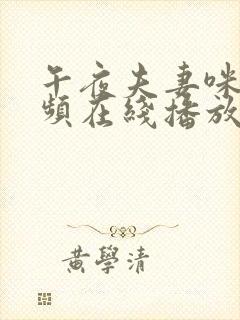 午夜夫妻咪
頻在綫播放
黃學清